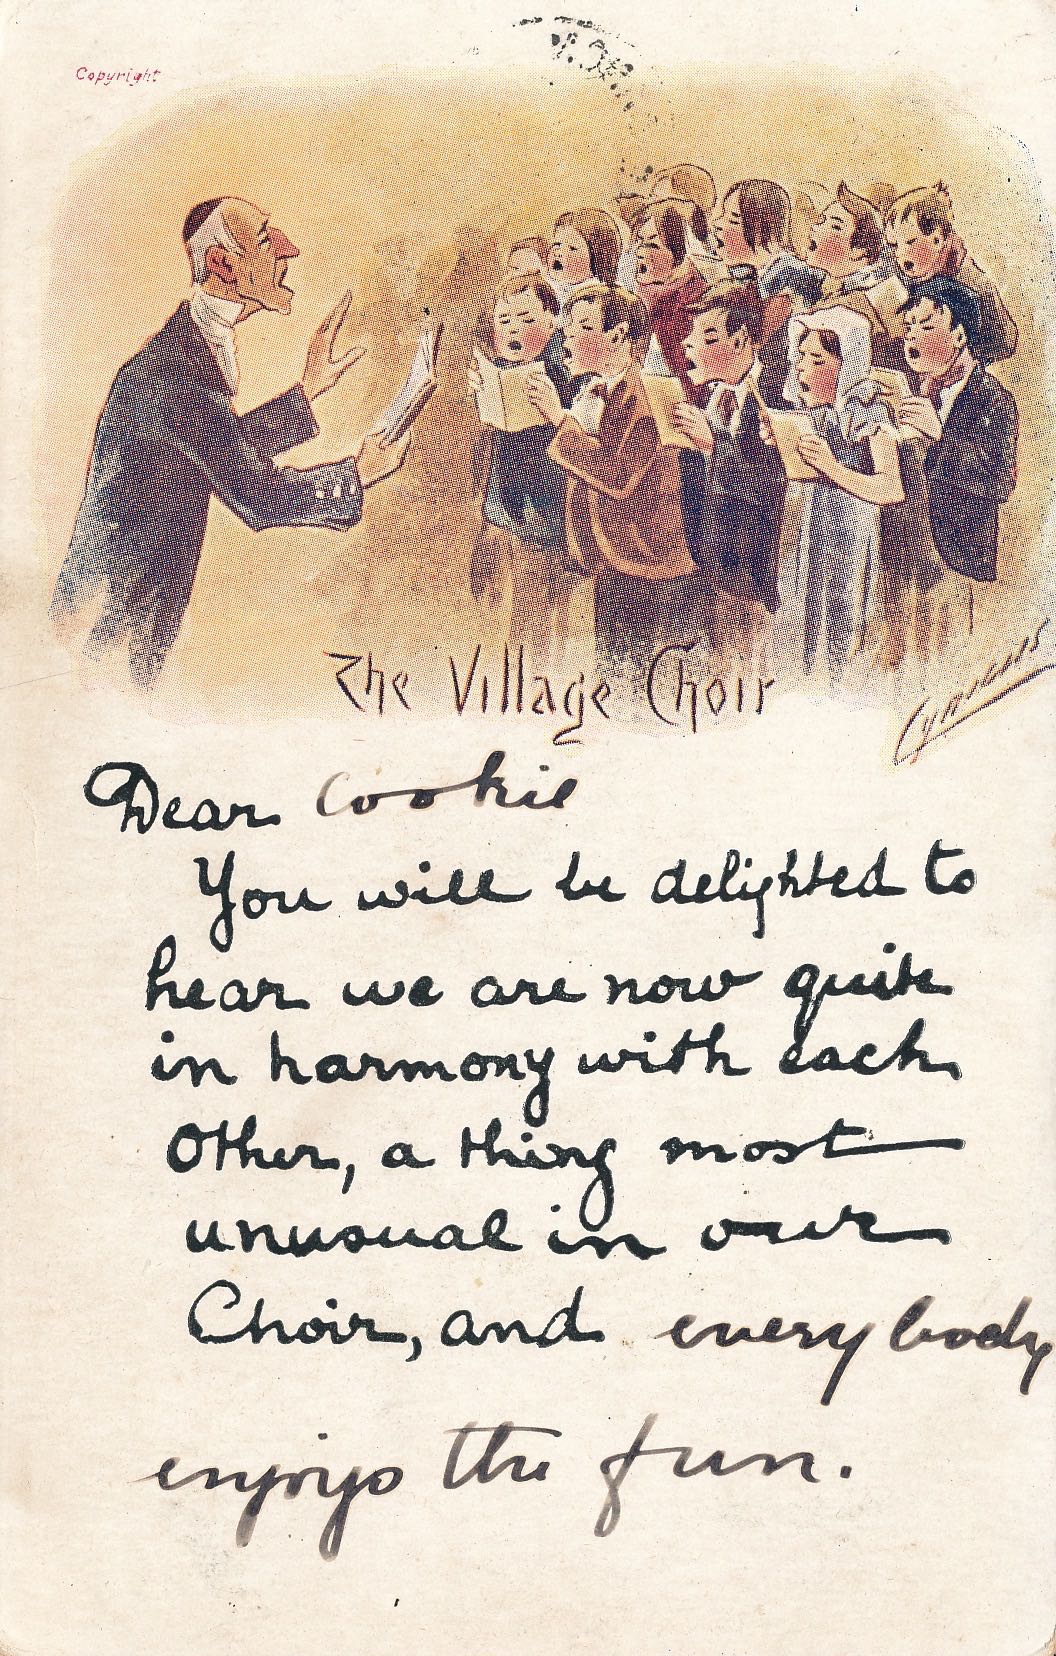 Copyright
The Village Choir
Cynicus
Dear Cookie
You will be delighted to
hear we are now quite
in harmony with each
Other, a thing most
unusual in our
Choir, and every body
enjoys the fun.